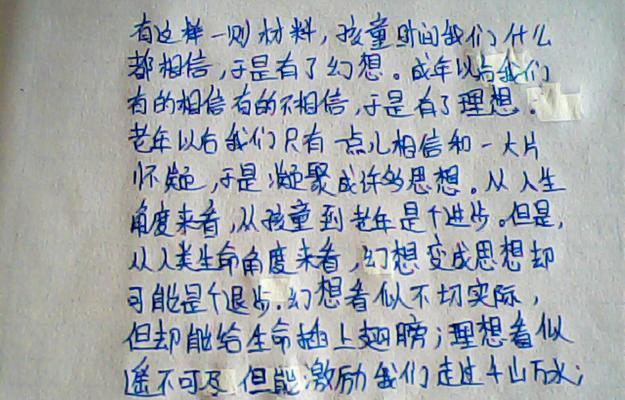 有这样一则材料，孩童时间我们什么
都相信，于是有了幻想。成年以后我们
有的相信有的不相信，于是有了理想。
老年以后我们只有一点儿相信和一大片
怀疑，于是凝聚成许多思想。从人生
角度来看，从孩童到老年是个进步。但是，
从人类生命角度来看，幻想变成思想却
可能是个退步。幻想看似不切实际，
但却能给生命插上翅膀；理想看似
遥不可及但能激励我们走过千山万水；